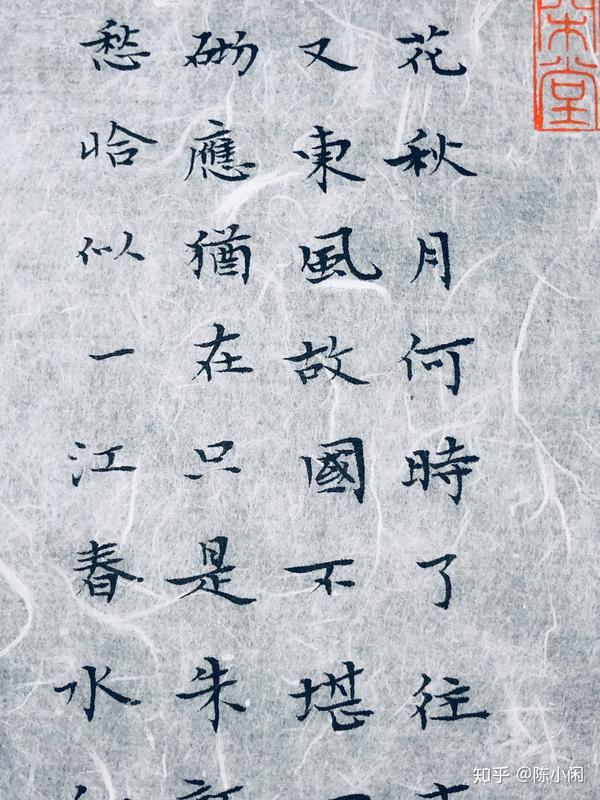 花秋月何時了往
又東風故國不堪
砌應猶在只是朱
愁恰似一江春水
堂
知乎 @陈小闲